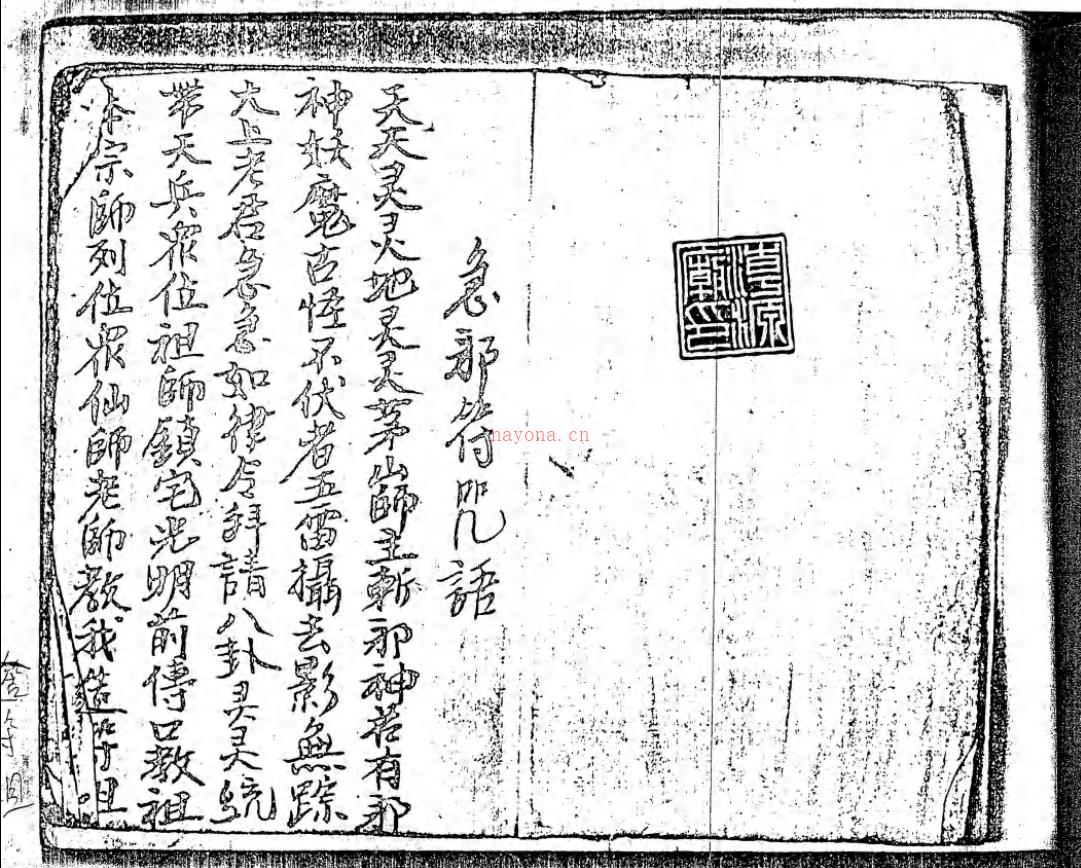 急邪符咒語
天天灵灵地灵灵茅山師主斬邪神若有邪
神妖魔古怪不伏者五雷攝去影無踪
大上老君急急如律令拜請八卦灵灵統
帶天兵衆位祖師鎮宅光明前傳口教祖
本宗師列位衆仙師老師教我造
nayona.cn